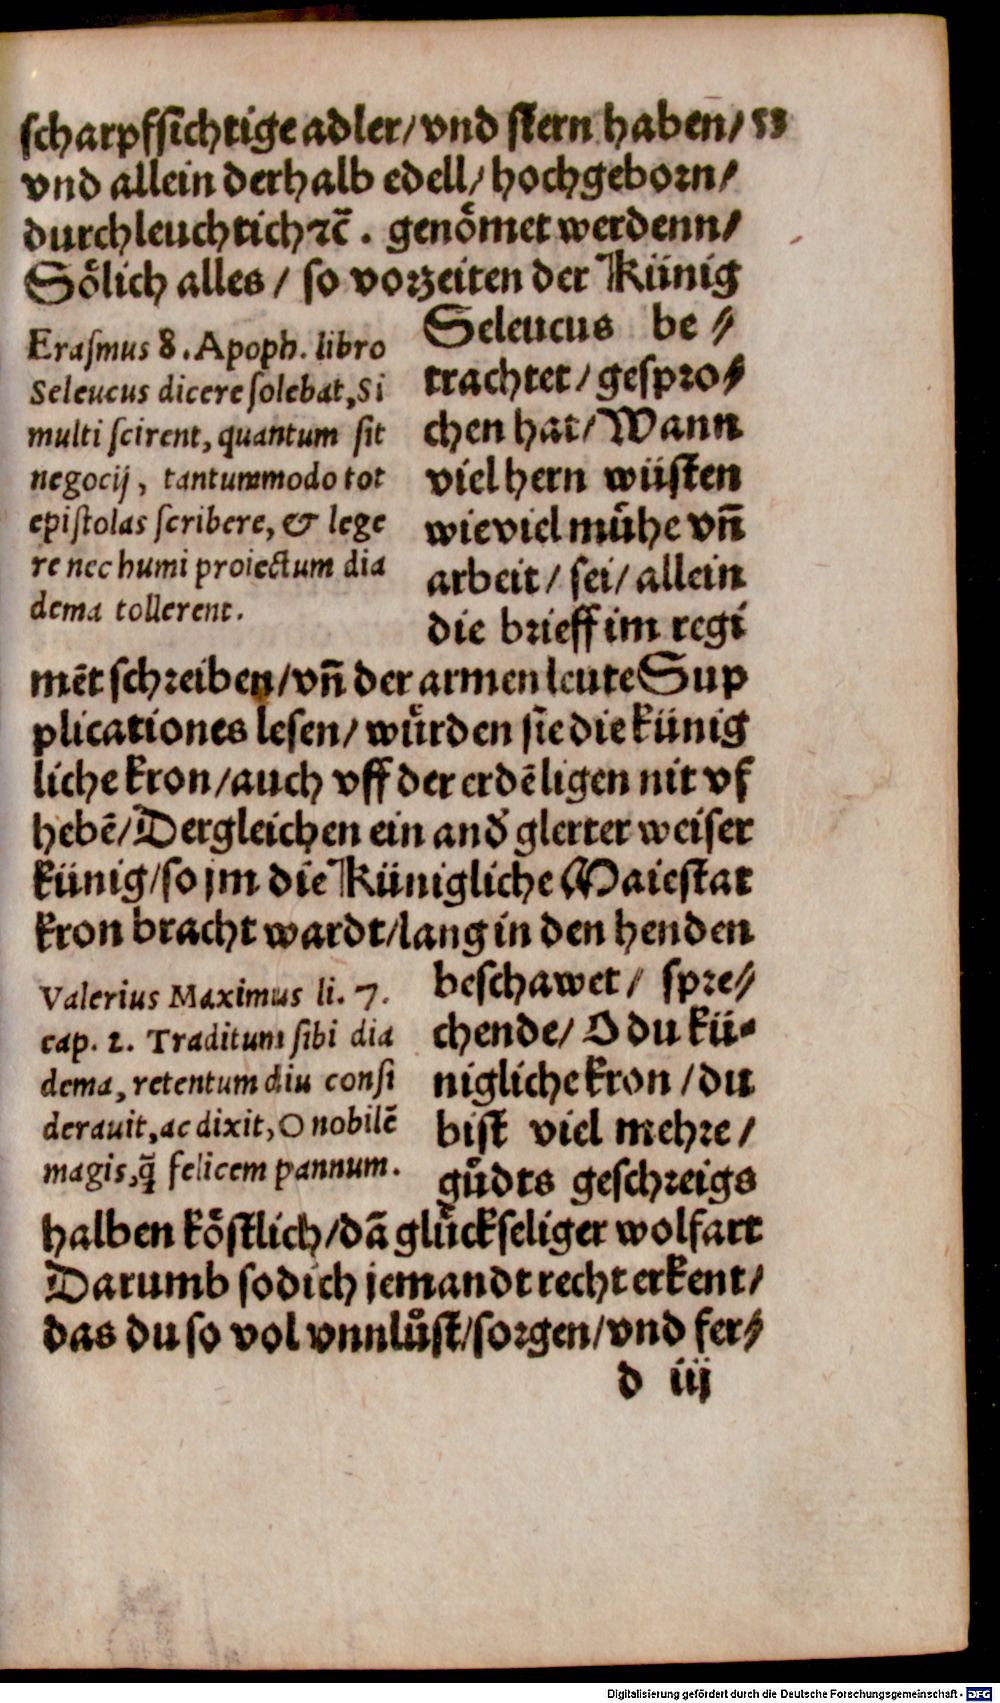 scharpfsichtige adler/ vnd stern haben/ 53
vnd allein derhalb edell/ hochgeborn/
durchleuchtich ꝛc̃. genömet werdenn/
Sölich alles/ so vorzeiten der Künig
Seleucus be⸗
trachtet/ gespro⸗
chen hat/ Wann
viel hern wüsten
wieviel mühe vñ
arbeit/ sei/ allein
die brieff im regi
Erasmus 8. Apoph. libro
Seleucus dicere solebat, Si
multi scirent, quantum sit
negocij, tantummodo tot
epistolas scribere, & lege
re nec humi proiectum dia
dema tollerent.
mẽt schreiben/ vñ der armen leute Sup
plicationes lesen/ würden sie die künig
liche kron/ auch vff der erdẽ ligen nit vf
hebẽ/ Dergleichen ein and̃ glerter weiser
künig/ so jm die Künigliche Maiestat
kron bracht wardt/ lang in den henden
beschawet/ spre⸗
chende/ O du kü⸗
nigliche kron/ du
bist viel mehre/
gůdts geschreigs
Valerius Maximus li. 7.
cap. 2. Traditum sibi dia
dema, retentum diu consi
derauit, ac dixit, O nobilẽ
magis, q̃ felicem pannum.
halben köstlich/ dã glückseliger wolfart
Darumb so dich jemandt recht erkent/
das du so vol vnnlůst/ sorgen/ vnd fer⸗
d iij
Digitalisierung gefördert durch die Deutsche Forschungsgemeinschaft - DFG